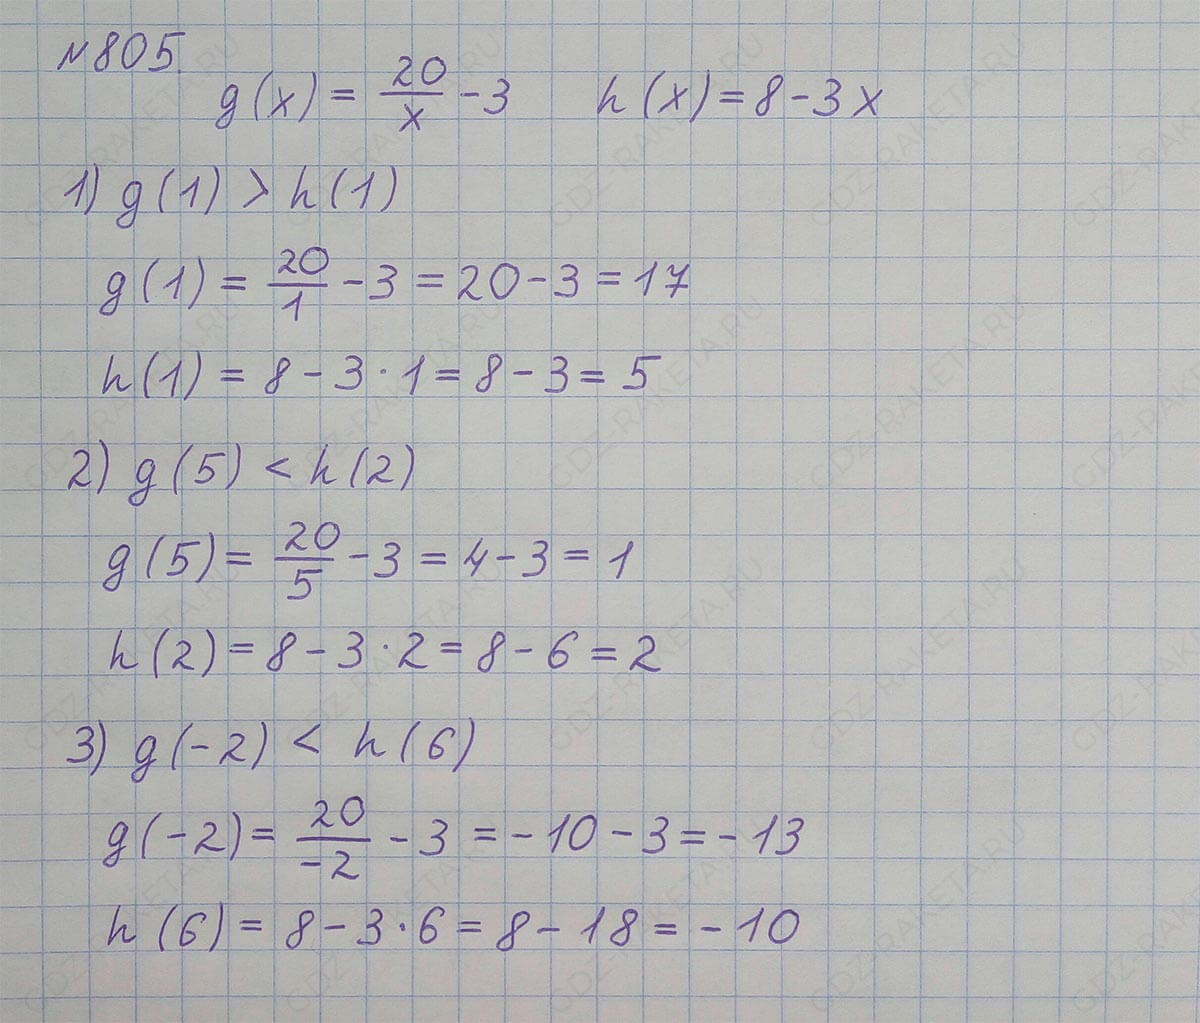 №805.
g(x) = 20/x - 3 h(x) = 8 - 3x
1) g(1) > h(1)
g(1) = 20/1 - 3 = 20 - 3 = 17
h(1) = 8 - 3 · 1 = 8 - 3 = 5
2) g(5) < h(2)
g(5) = 20/5 - 3 = 4 - 3 = 1
h(2) = 8 - 3 · 2 = 8 - 6 = 2
3) g(-2) < h(6)
g(-2) = 20/-2 - 3 = -10 - 3 = -13
h(6) = 8 - 3 · 6 = 8 - 18 = -10
GDZ-RAKETA.RU